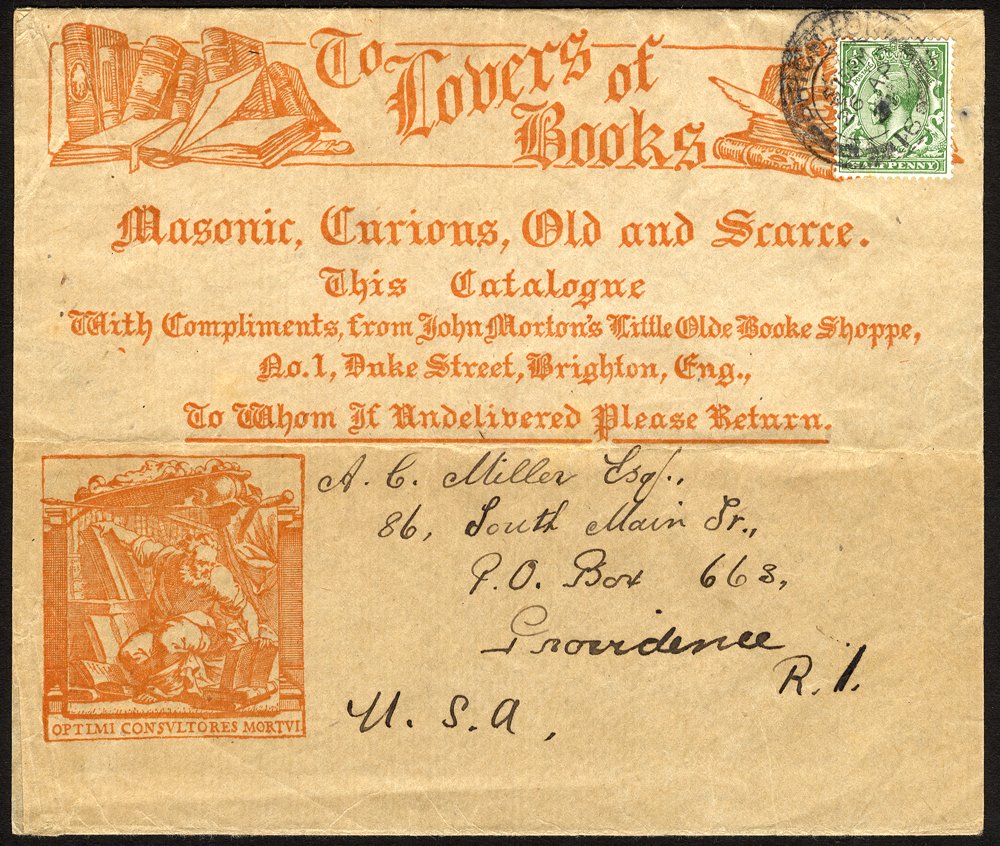 To
Lovers of
Books
HALFPENNY
Masonic, Curious, Old and Scarce.
This Catalogue
With Compliments, from John Morton's Little Olde Booke Shoppe,
No. 1, Duke Street, Brighton, Eng.,
To Whom If Undelivered Please Return.
A. C. Miller Esq.,
86, South Main Sr.,
P.O. Box 663,
Providence
R.I.
U.S.A,
OPTIMI CONSVLTORES MORTVI